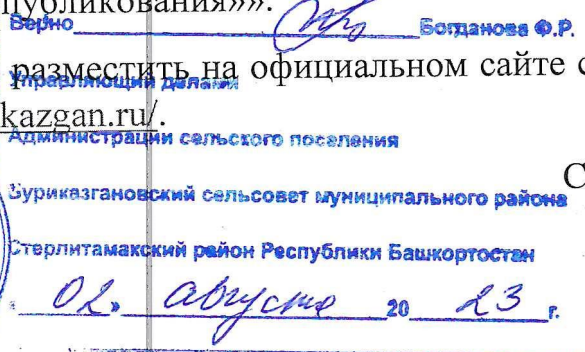 публикования»».
Верно Богданова Ф.Р.
разместить на официальном сайте с
Управляющий делами
kazgan.ru/.
Администрации сельского поселения
С
Буриказгановский сельсовет муниципального района
Стерлитамакский район Республики Башкортостан
« 02 » августа 20 23 г.